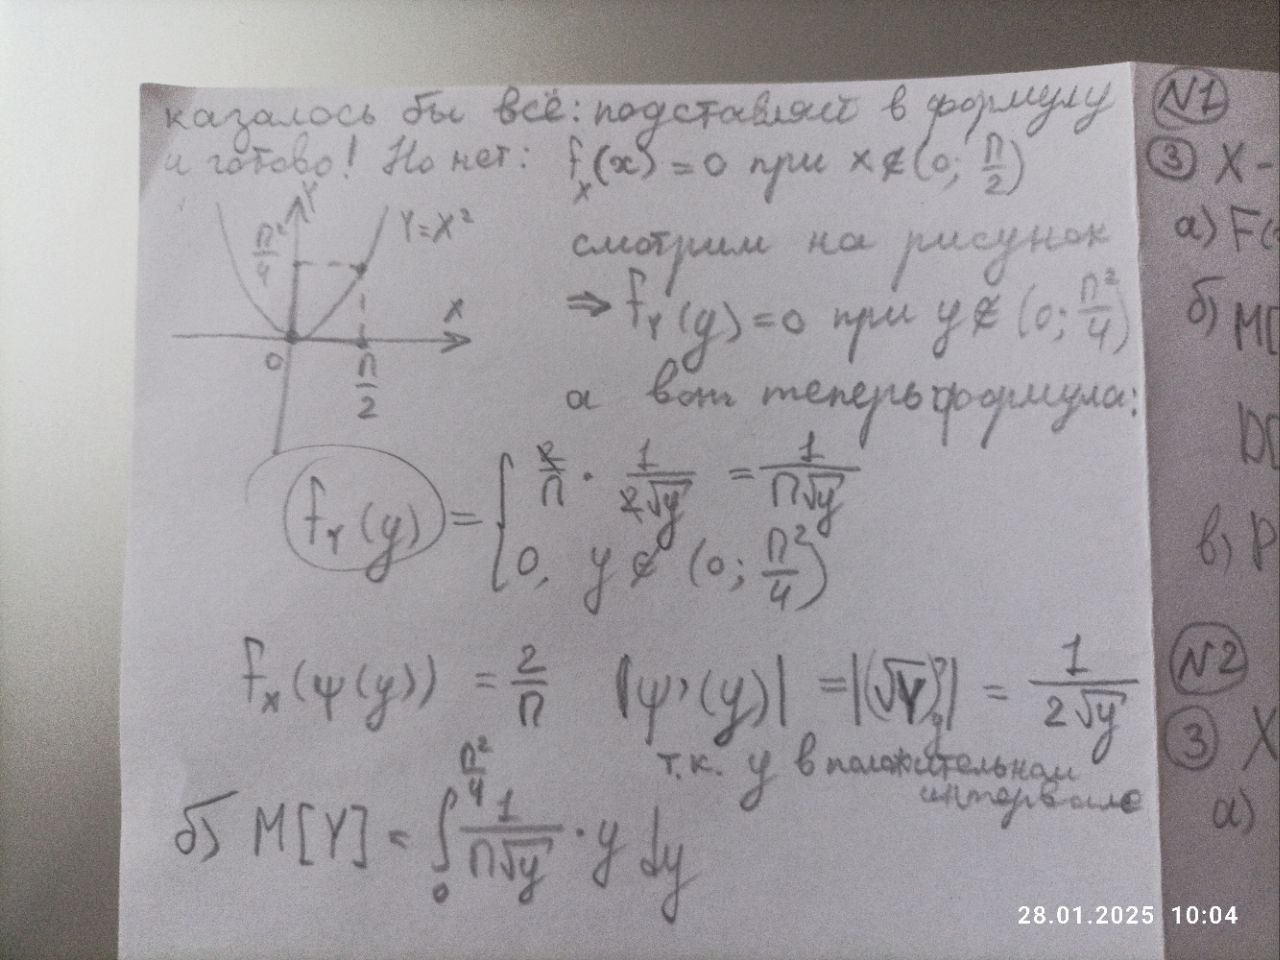 казалось бы всё: подставляй в формулу
и готово! Но нет: f_X(x) = 0 при x ∉ (0; π/2)
Y
Y=X²
π²/4
смотрим на рисунок
X
⇒ f_Y(y) = 0 при y ∉ (0; π²/4)
0
π/2
а вот теперь формула:
f_Y(y) = { 2/π · 1/(2√y) = 1/(π√y)
0, y ∉ (0; π²/4)
f_X(ψ(y)) = 2/π |ψ'(y)| = |(√y)'_y| = 1/(2√y)
т.к. y в положительном
интервале
б) M[Y] = ∫₀^{π²/4} 1/(π√y) · y dy
N1
3 X -
а) F(
б) M[
D[
в) P
N2
3 X
а)
28.01.2025 10:04